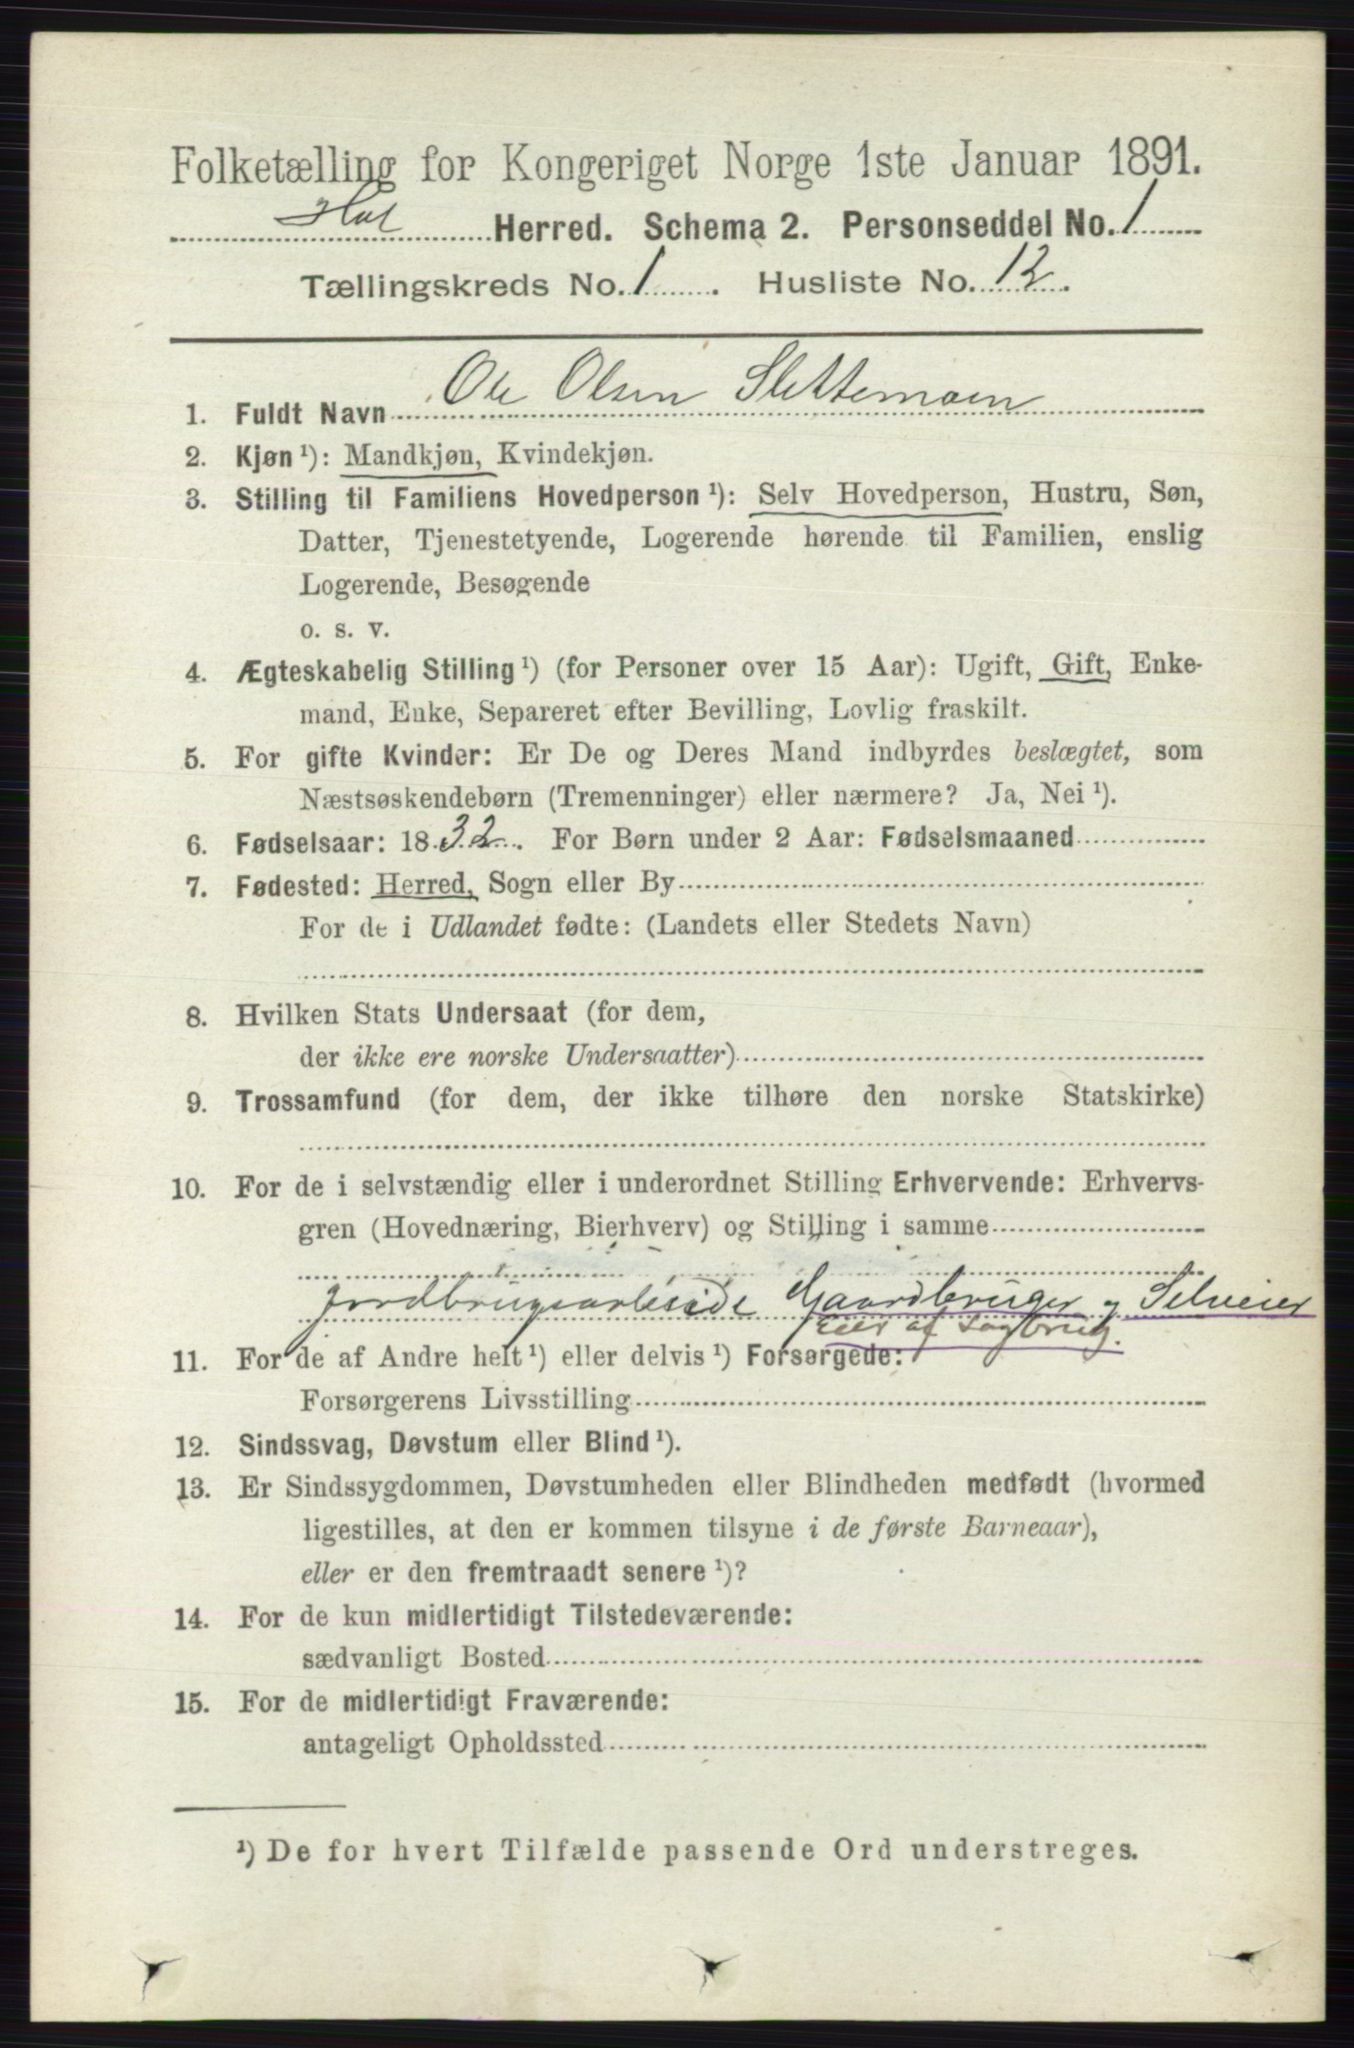 Folketælling for Kongeriget Norge 1ste Januar 1891.
Hol Herred. Schema 2. Personseddel No. 1
Tællingskreds No. 1. Husliste No. 12.
1. Fuldt Navn Ole Olsen Slettemoen
2. Kjøn ¹): Mandkjøn, Kvindekjøn.
3. Stilling til Familiens Hovedperson ¹): Selv Hovedperson, Hustru, Søn,
Datter, Tjenestetyende, Logerende hørende til Familien, enslig
Logerende, Besøgende
o. s. v.
4. Ægteskabelig Stilling ¹) (for Personer over 15 Aar): Ugift, Gift, Enke-
mand, Enke, Separeret efter Bevilling, Lovlig fraskilt.
5. For gifte Kvinder: Er De og Deres Mand indbyrdes beslægtet, som
Næstsøskendebørn (Tremenninger) eller nærmere? Ja, Nei ¹).
6. Fødselsaar: 1832. For Børn under 2 Aar: Fødselsmaaned
7. Fødested: Herred, Sogn eller By
For de i Udlandet fødte: (Landets eller Stedets Navn)
8. Hvilken Stats Undersaat (for dem,
der ikke ere norske Undersaatter)
9. Trossamfund (for dem, der ikke tilhøre den norske Statskirke)
10. For de i selvstændig eller i underordnet Stilling Erhvervende: Erhvervs-
gren (Hovednæring, Bierhverv) og Stilling i samme
Gaardbruger og Selveier
Eier af Sagbrug.
11. For de af Andre helt ¹) eller delvis ¹) Forsørgede:
Forsørgerens Livsstilling
12. Sindssvag, Døvstum eller Blind ¹).
13. Er Sindssygdommen, Døvstumheden eller Blindheden medfødt (hvormed
ligestilles, at den er kommen tilsyne i de første Barneaar),
eller er den fremtraadt senere ¹)?
14. For de kun midlertidigt Tilstedeværende:
sædvanligt Bosted
15. For de midlertidigt Fraværende:
antageligt Opholdssted
¹) De for hvert Tilfælde passende Ord understreges.